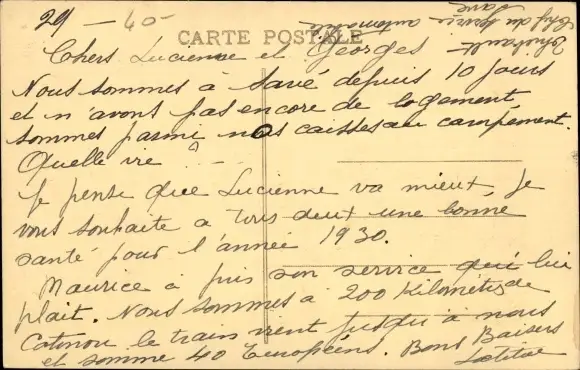 29 - 40 -
Chef du Service
automobile
Savé
CARTE POSTALE
Chers Lucienne et Georges
Nous sommes à Savé depuis 10 jours
et n'avons pas encore de logement,
sommes parmi nos caisses au campement.
Quelle vie ? -
Je pense que Lucienne va mieux, je
vous souhaite a tous deux une bonne
santé pour l'année 1930.
Maurice à pris son service qui lui
plait. Nous sommes à 200 Kilomètres de
Cotonou le train vient jusqu'à nous
et somme 40 Européens. Bons Baisers